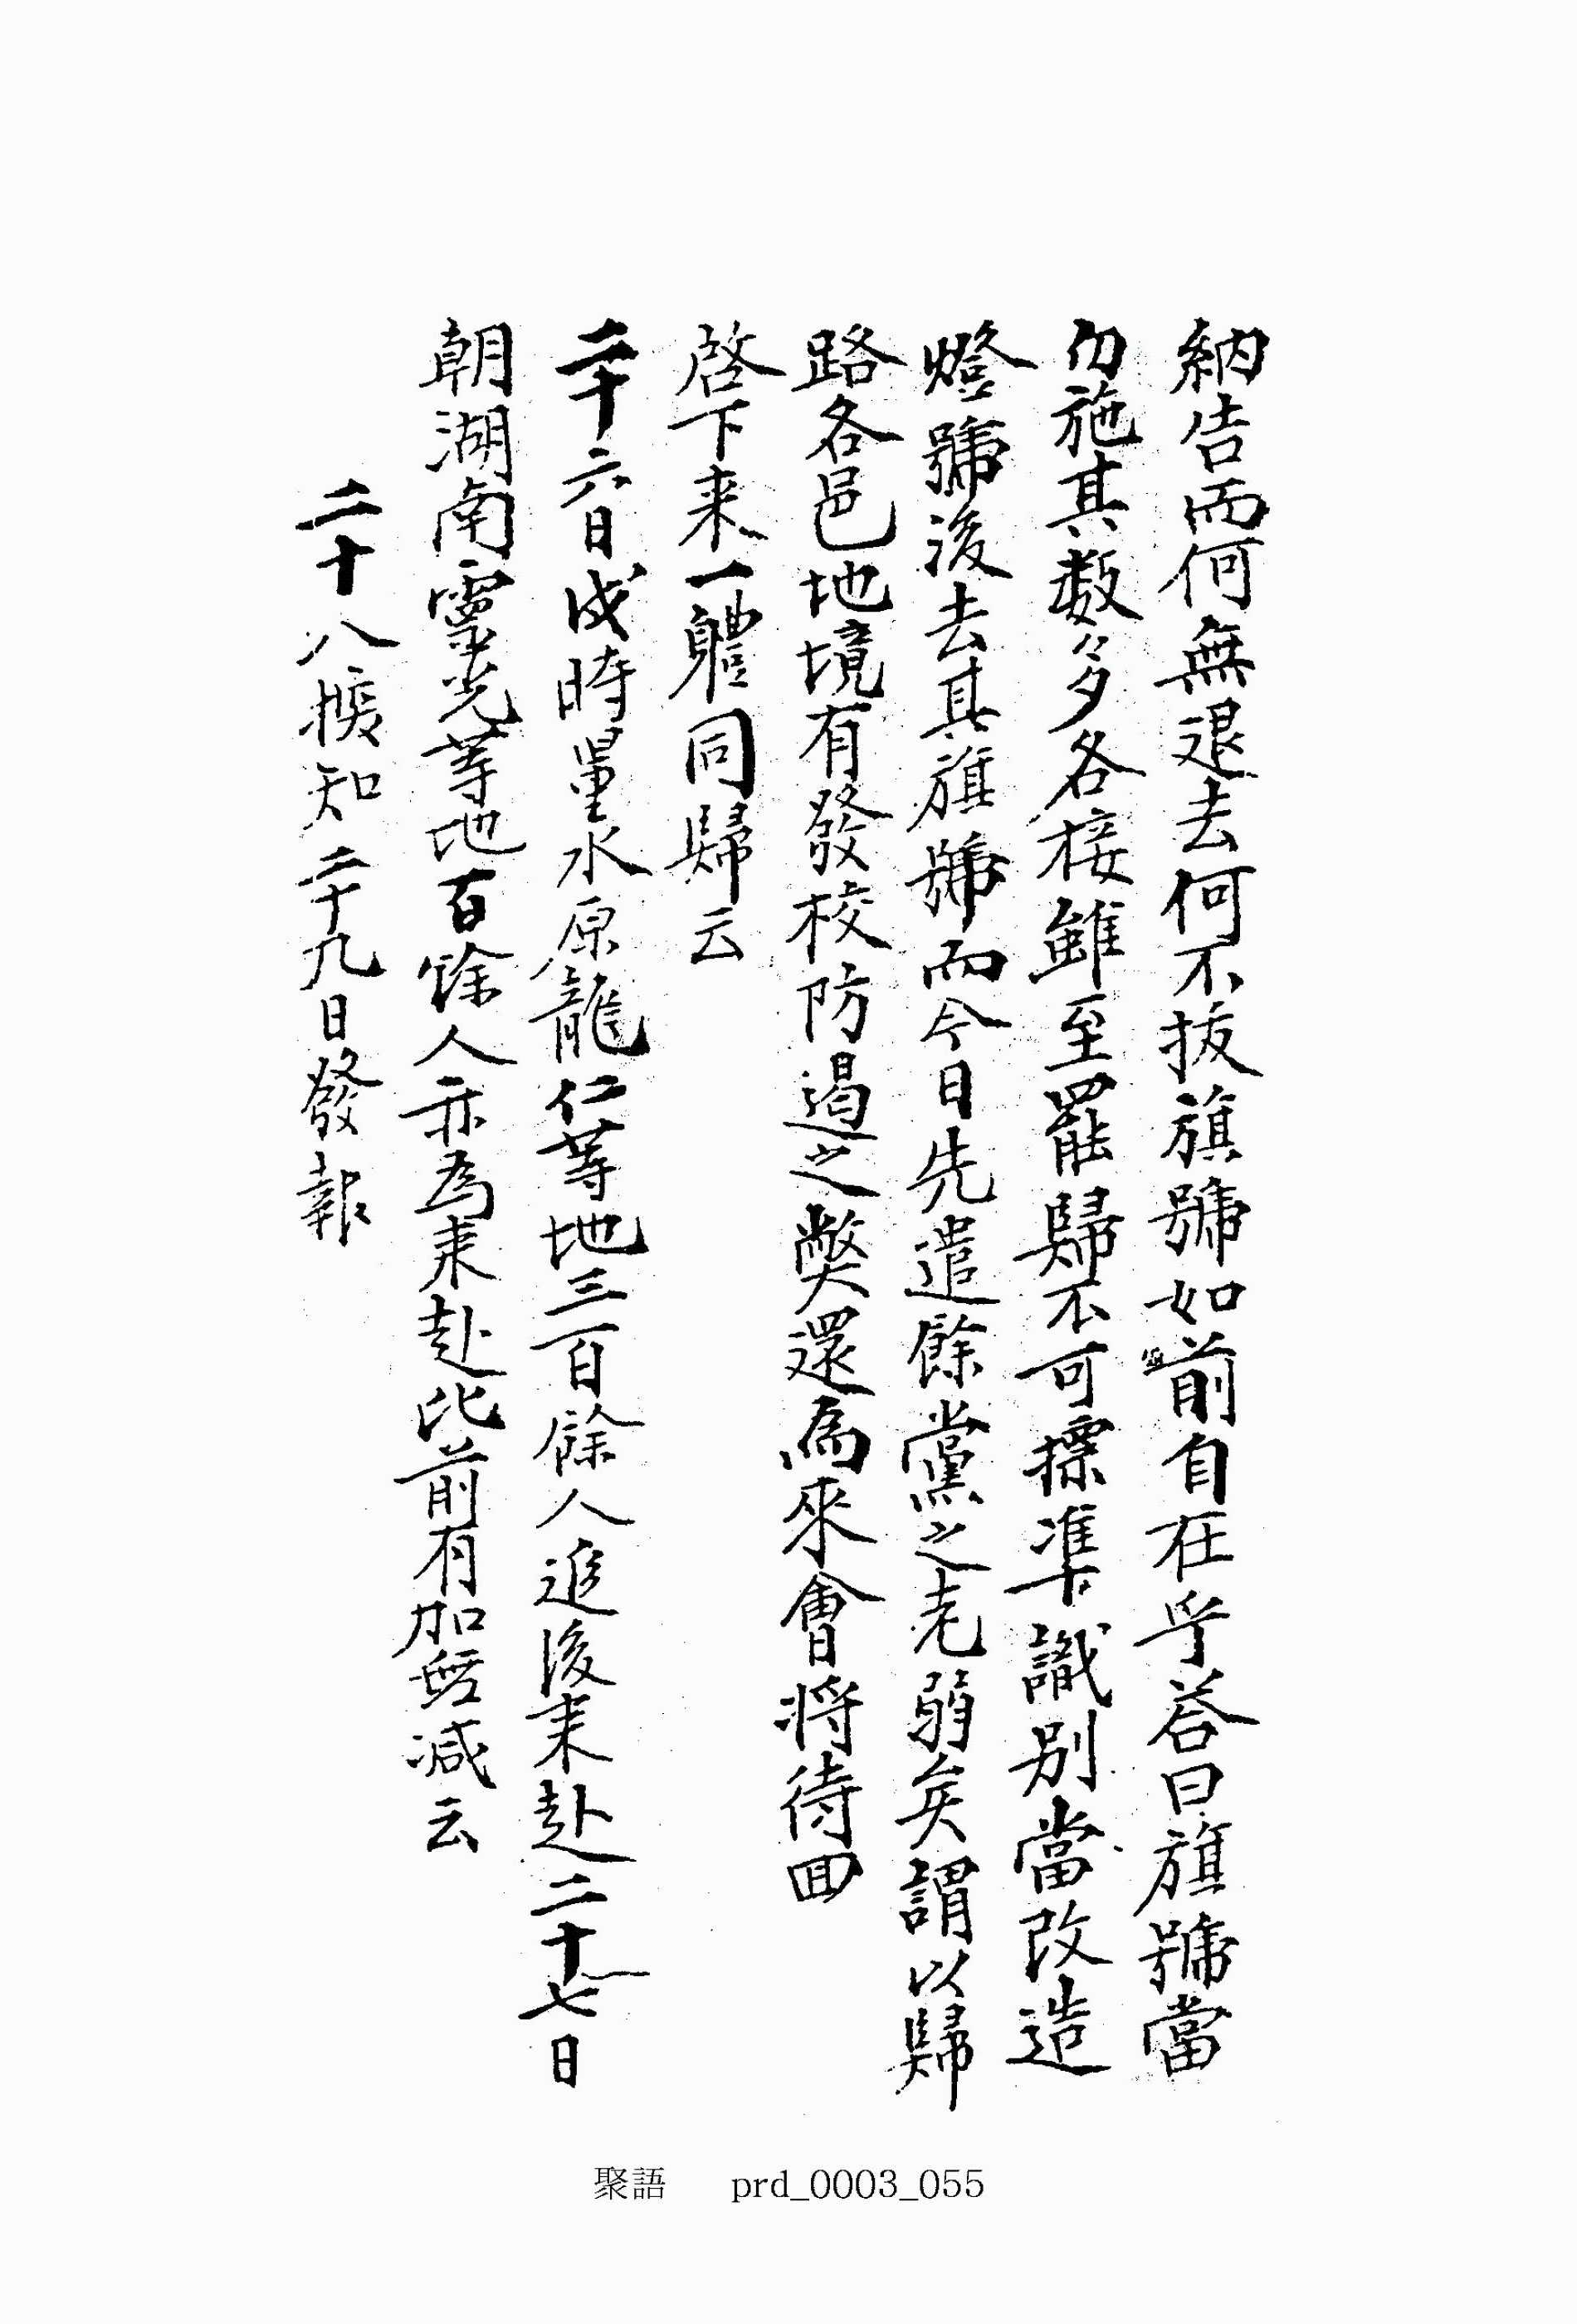 納告而何無退去何不拔旗號如前自在乎答曰旗號當
勿施其数多各接雖至罷歸不可標準識別當改造
燈號後去其旗號而今日先遣餘黨之老弱矣謂以歸
路各邑地境有發校防遏之弊還為來會將待回
啓下来一軆同歸云
二十六日戌時量水原龍仁等地三百餘人追後来赴二十七日
朝湖南靈光等地百餘人亦為来赴比前有加無减云
二十八探知二十九日發報
聚語 prd_0003_055